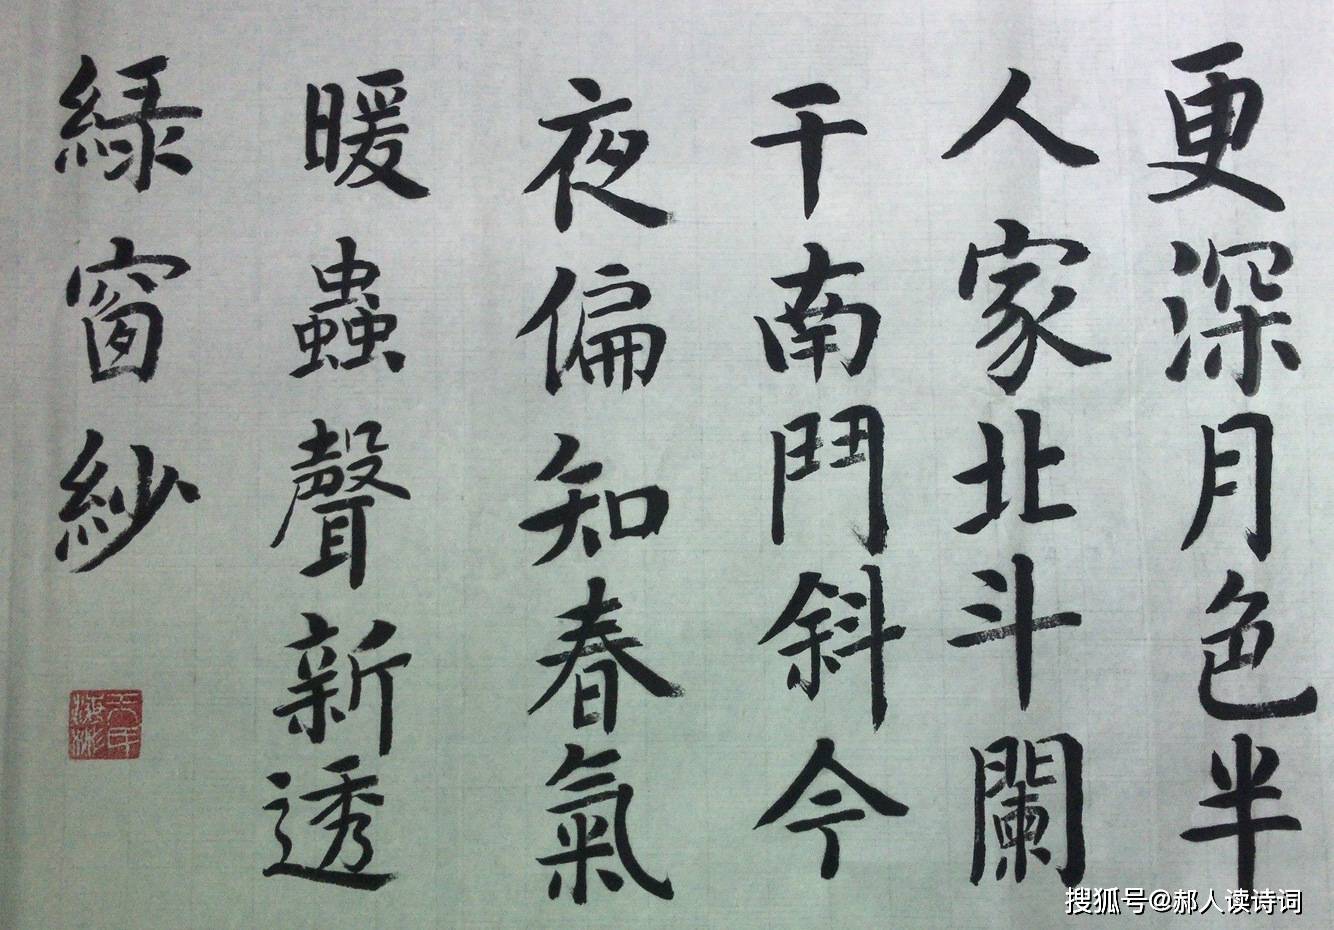 更深月色半
人家北斗闌
干南鬥斜今
夜偏知春氣
暖蟲聲新透
綠窗紗
搜狐号@郝人读诗词